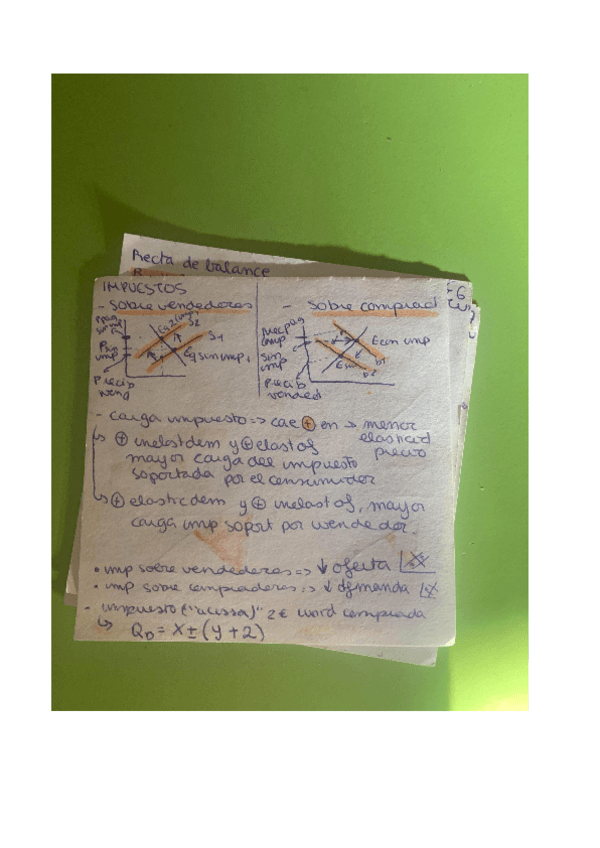 Recta de balance
IMPUESTOS
- Sobre vendedores
- Sobre comprad
S2
S1
Eq sin imp
P sin imp
P recib vend
E con imp
sin imp
D1
D2
P recib vended
- carga impuesto => cae + en -> menor elasticid precio
↳ ⊕ inelast dem y ⊕ elast of
mayor carga del impuesto
soportada por el consumidor
↳ ⊕ elastic dem y ⊕ inelast of, mayor
carga imp soport por vendedor
• imp sobre vendedores => ↓ oferta
• imp sobre compradores => ↓ demanda
- impuesto ("a tassa)" 2€ unid comprada
↳ QD = x ± (y + 2)